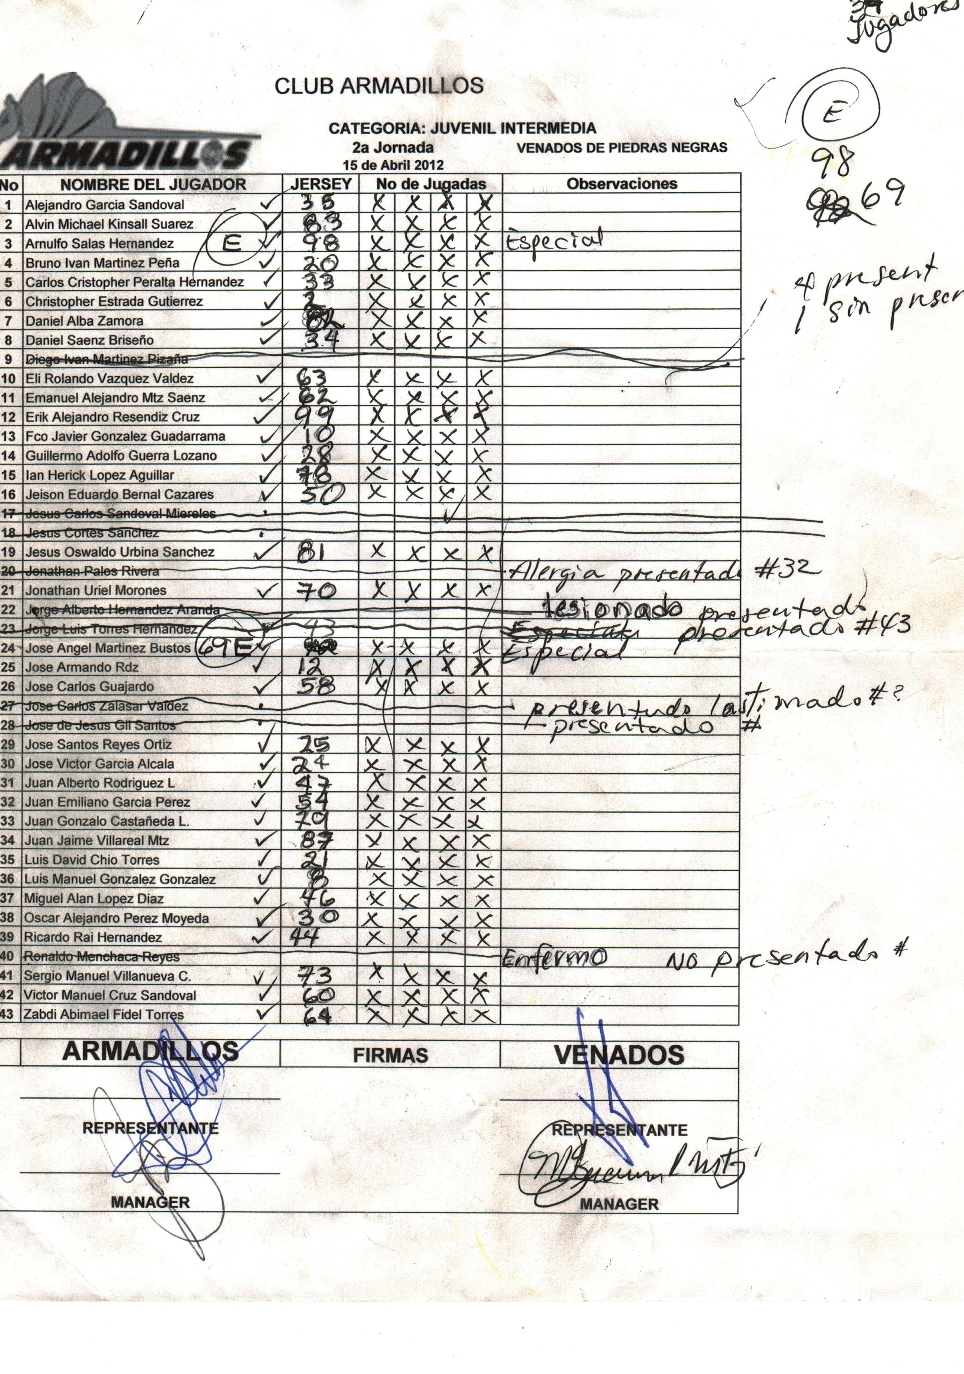 Jugadores
CLUB ARMADILLOS
E
CATEGORIA: JUVENIL INTERMEDIA
ARMADILLOS
2a Jornada VENADOS DE PIEDRAS NEGRAS
15 de Abril 2012
98
69
No NOMBRE DEL JUGADOR JERSEY No de Jugadas Observaciones
1 Alejandro Garcia Sandoval ✓ 35 X X X X
2 Alvin Michael Kinsall Suarez ✓ 83 X X X X
3 Arnulfo Salas Hernandez E ✓ 98 X X X X Especial
4 Bruno Ivan Martinez Peña ✓ 20 X X X X
5 Carlos Cristopher Peralta Hernandez ✓ 33 X X X X
4 present
6 Christopher Estrada Gutierrez ✓ 2 X X X X
1 Sin presen
7 Daniel Alba Zamora ✓ 82 X X X X
8 Daniel Saenz Briseño ✓ 34 X X X X
9 Diego Ivan Martinez Pizaña
10 Eli Rolando Vazquez Valdez ✓ 63 X X X X
11 Emanuel Alejandro Mtz Saenz ✓ 62 X X X X
12 Erik Alejandro Resendiz Cruz ✓ 99 X X X X
13 Fco Javier Gonzalez Guadarrama ✓ 10 X X X X
14 Guillermo Adolfo Guerra Lozano ✓ 28 X X X X
15 Ian Herick Lopez Aguillar ✓ 78 X X X X
16 Jeison Eduardo Bernal Cazares ✓ 50 X X X X
17 Jesus Carlos Sandoval Miereles
18 Jesus Cortes Sanchez
19 Jesus Oswaldo Urbina Sanchez ✓ 81 X X X X
20 Jonathan Palos Rivera Alergia presentado #32
21 Jonathan Uriel Morones ✓ 70 X X X X
22 Jorge Alberto Hernandez Aranda lesionado presentado
23 Jorge Luis Torres Hernandez ✓ 43 Especial presentado #43
24 Jose Angel Martinez Bustos 69 E ✓ X X X X Especial
25 Jose Armando Rdz ✓ 12 X X X X
26 Jose Carlos Guajardo ✓ 58 X X X X
27 Jose Carlos Zalasar Valdez presentado lastimado #?
28 Jose de Jesus Gil Santos presentado #
29 Jose Santos Reyes Ortiz ✓ 25 X X X X
30 Jose Victor Garcia Alcala ✓ 24 X X X X
31 Juan Alberto Rodriguez L ✓ 47 X X X X
32 Juan Emiliano Garcia Perez ✓ 54 X X X X
33 Juan Gonzalo Castañeda L. ✓ 79 X X X X
34 Juan Jaime Villareal Mtz ✓ 87 X X X X
35 Luis David Chio Torres ✓ 21 X X X X
36 Luis Manuel Gonzalez Gonzalez ✓ 8 X X X X
37 Miguel Alan Lopez Diaz ✓ 46 X X X X
38 Oscar Alejandro Perez Moyeda ✓ 30 X X X X
39 Ricardo Rai Hernandez ✓ 44 X X X X
40 Ronaldo Menchaca Reyes Enfermo NO presentado #
41 Sergio Manuel Villanueva C. ✓ 73 X X X X
42 Victor Manuel Cruz Sandoval ✓ 60 X X X X
43 Zabdi Abimael Fidel Torres ✓ 64 X X X X
ARMADILLOS FIRMAS VENADOS
REPRESENTANTE REPRESENTANTE
MANAGER MANAGER